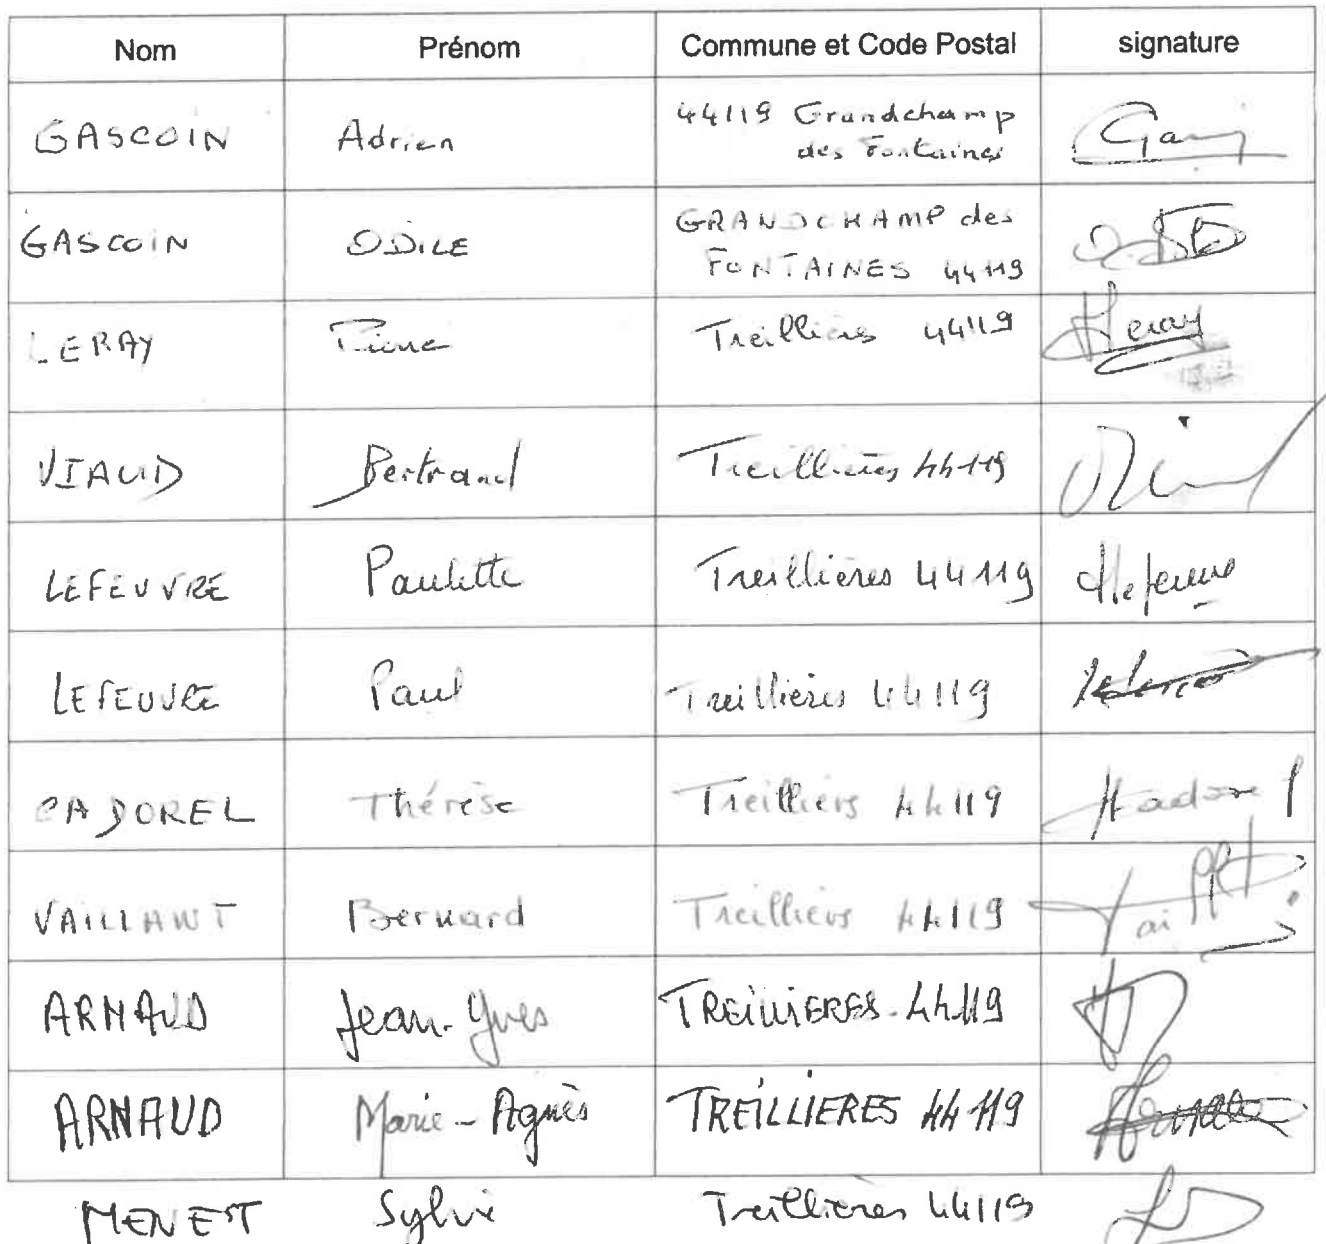 Nom Prénom Commune et Code Postal signature
GASCOIN Adrien 44119 Grandchamp
des Fontaines
GASCOIN ODILE GRANDCHAMP des
FONTAINES 44119
LERAY Pierre Treillières 44119 Leray
VIAUD Bertrand Treillières 44119
LEFEUVRE Paulette Treillières 44119 Lefeuvre
LEFEUVRE Paul Treillières 44119
CADOREL Thérèse Treillières 44119 Cadorel
VAILLANT Bernard Treillières 44119
ARNAUD Jean-Yves TREILLIERES 44119
ARNAUD Marie-Agnès TREILLIERES 44119
MENEST Sylvie Treillières 44119